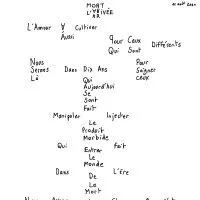 MORT
L'ARRIVÉE
L'Amour Y Cultiver
Aussi
Pour Ceux
Qui Sont
Différents
Nous
Serons
Là
Dans Dix Ans
Pour
Soigner
Ceux
Qui
Aujourd'hui
Se
Sont
Fait
Manipuler Injecter
Le
Produit
Morbide
Qui Fait
Entrer
Le
Monde
Dans L'Ère
De
La
Mort